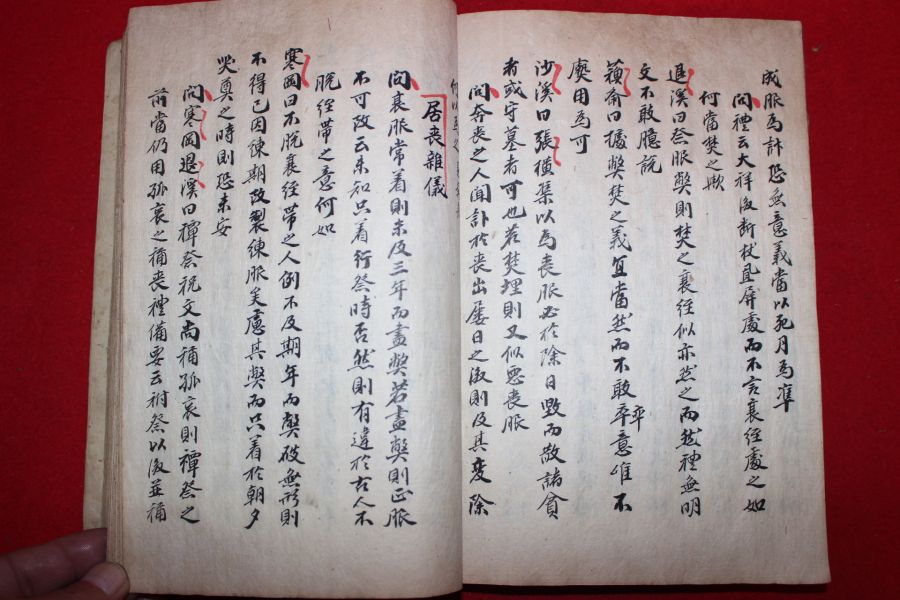 成服爲計恐無意義當以死月爲準
問禮云大祥後斷杖且屛處而不言衰絰處之如
何當焚之歟
退溪曰祭服弊則焚之衰絰似亦然之而然禮無明
文不敢臆說
蘋齋曰據弊焚之義宜當然而不敢卒意唯不
廢用爲可
沙溪曰張橫集以爲喪服必於除日毁而散諸貧
者或守墓者可也若焚埋則又似惡喪服
問奔喪之人聞訃於喪出屢日之後則及其變除
居喪雜儀
問衰服常着則未及三年而盡弊若盡弊則正服
不可改云未知只着行祭時否然則有違於古人不
脫絰帶之意何如
寒岡曰不脫衰絰帶之人例不及期年而弊破無形則
不得已因練期改製練服矣慮其弊而只着於朝夕
哭奠之時則恐未安
問寒岡退溪曰禫祭祝文尙稱孤哀則禫祭之
前當仍用孤哀之稱喪禮備要云祔祭以後並稱